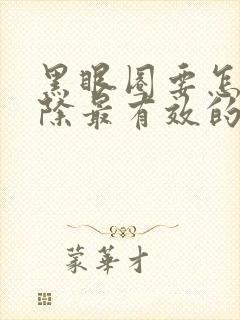 黑眼圈要怎
除最有效的
蒙華才